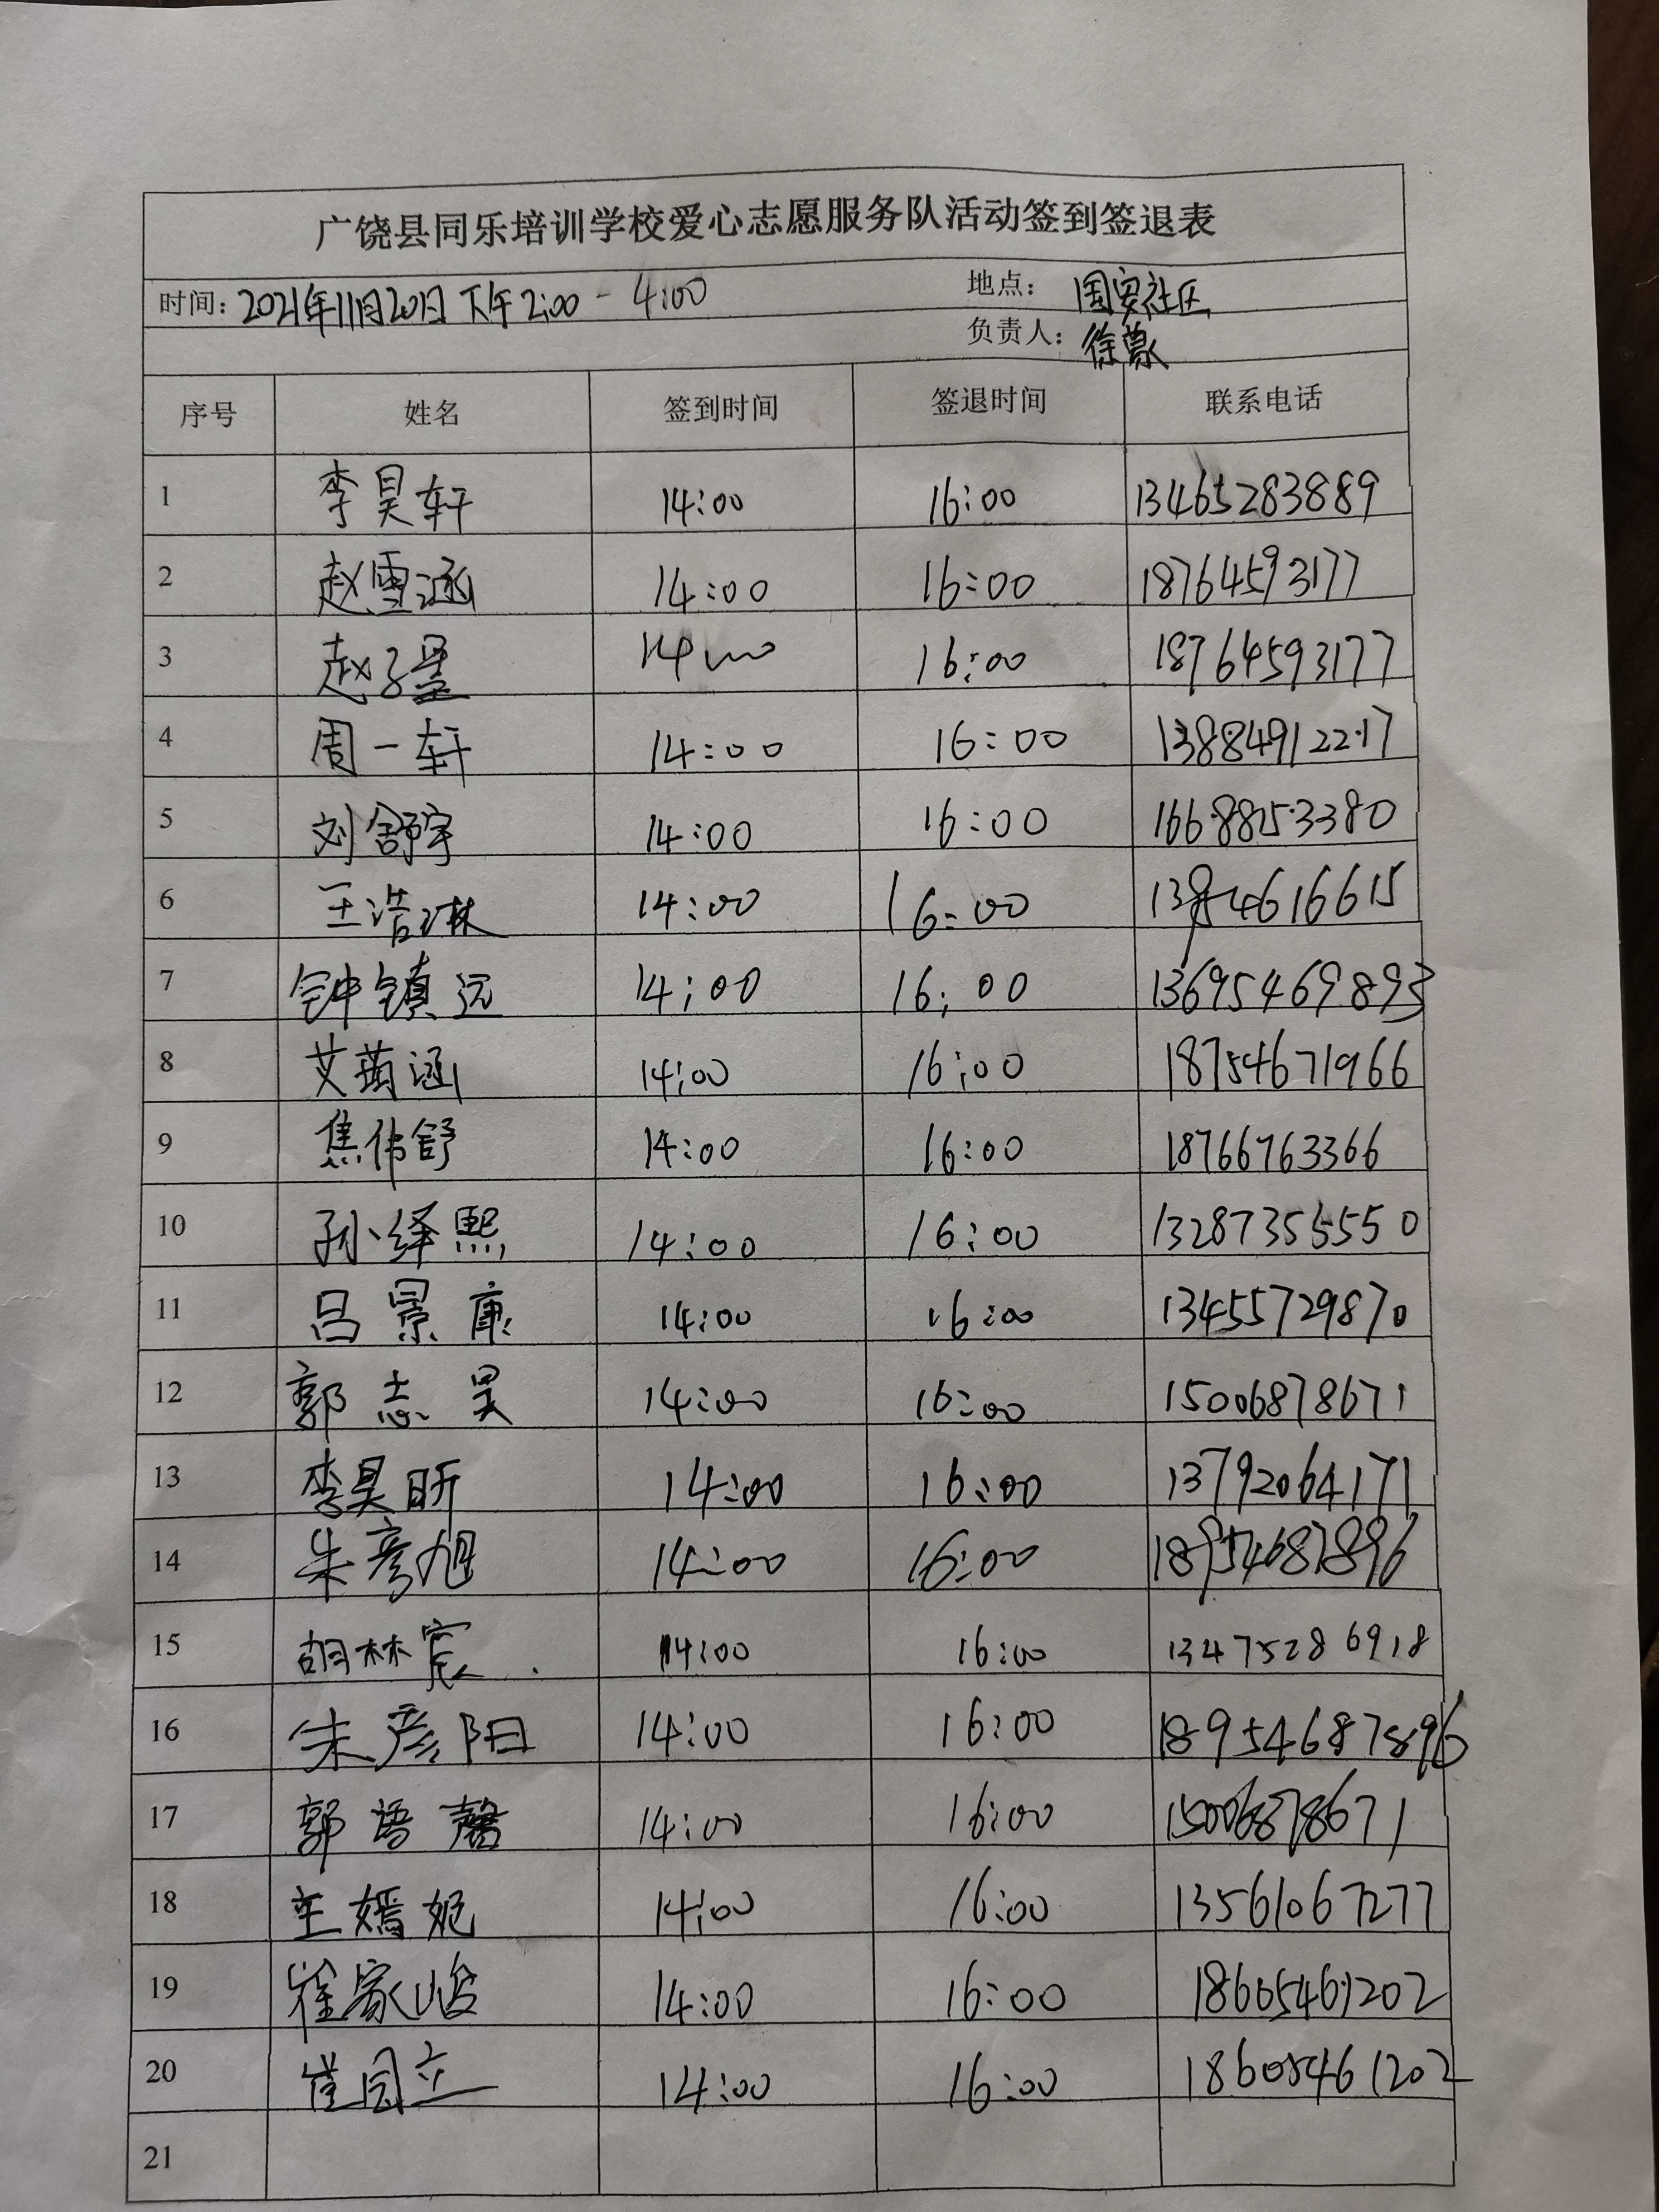 广饶县同乐培训学校爱心志愿服务队活动签到签退表
时间：2021年11月20日下午2:00-4:00 地点：国安社区
负责人：徐蒙
序号 姓名 签到时间 签退时间 联系电话
1 李昊轩 14:00 16:00 13465283889
2 赵雪涵 14:00 16:00 18764593177
3 赵子墨 14:00 16:00 18764593177
4 周一轩 14:00 16:00 13884912217
5 刘舒宇 14:00 16:00 16688153380
6 王浩琳 14:00 16:00 13854616615
7 钟镇远 14:00 16:00 13695469893
8 艾菡涵 14:00 16:00 18754671966
9 焦伟舒 14:00 16:00 18766763366
10 孙绎熙 14:00 16:00 13287355550
11 吕景康 14:00 16:00 13455729870
12 郭志昊 14:00 16:00 15006878671
13 李昊昕 14:00 16:00 13792064171
14 朱彦旭 14:00 16:00 18954687896
15 胡林宸 14:00 16:00 13475286918
16 朱彦阳 14:00 16:00 18954687896
17 郭语馨 14:00 16:00 15006878671
18 王嫣妮 14:00 16:00 13561067277
19 崔家峻 14:00 16:00 18605461202
20 崔国立 14:00 16:00 18605461202
21